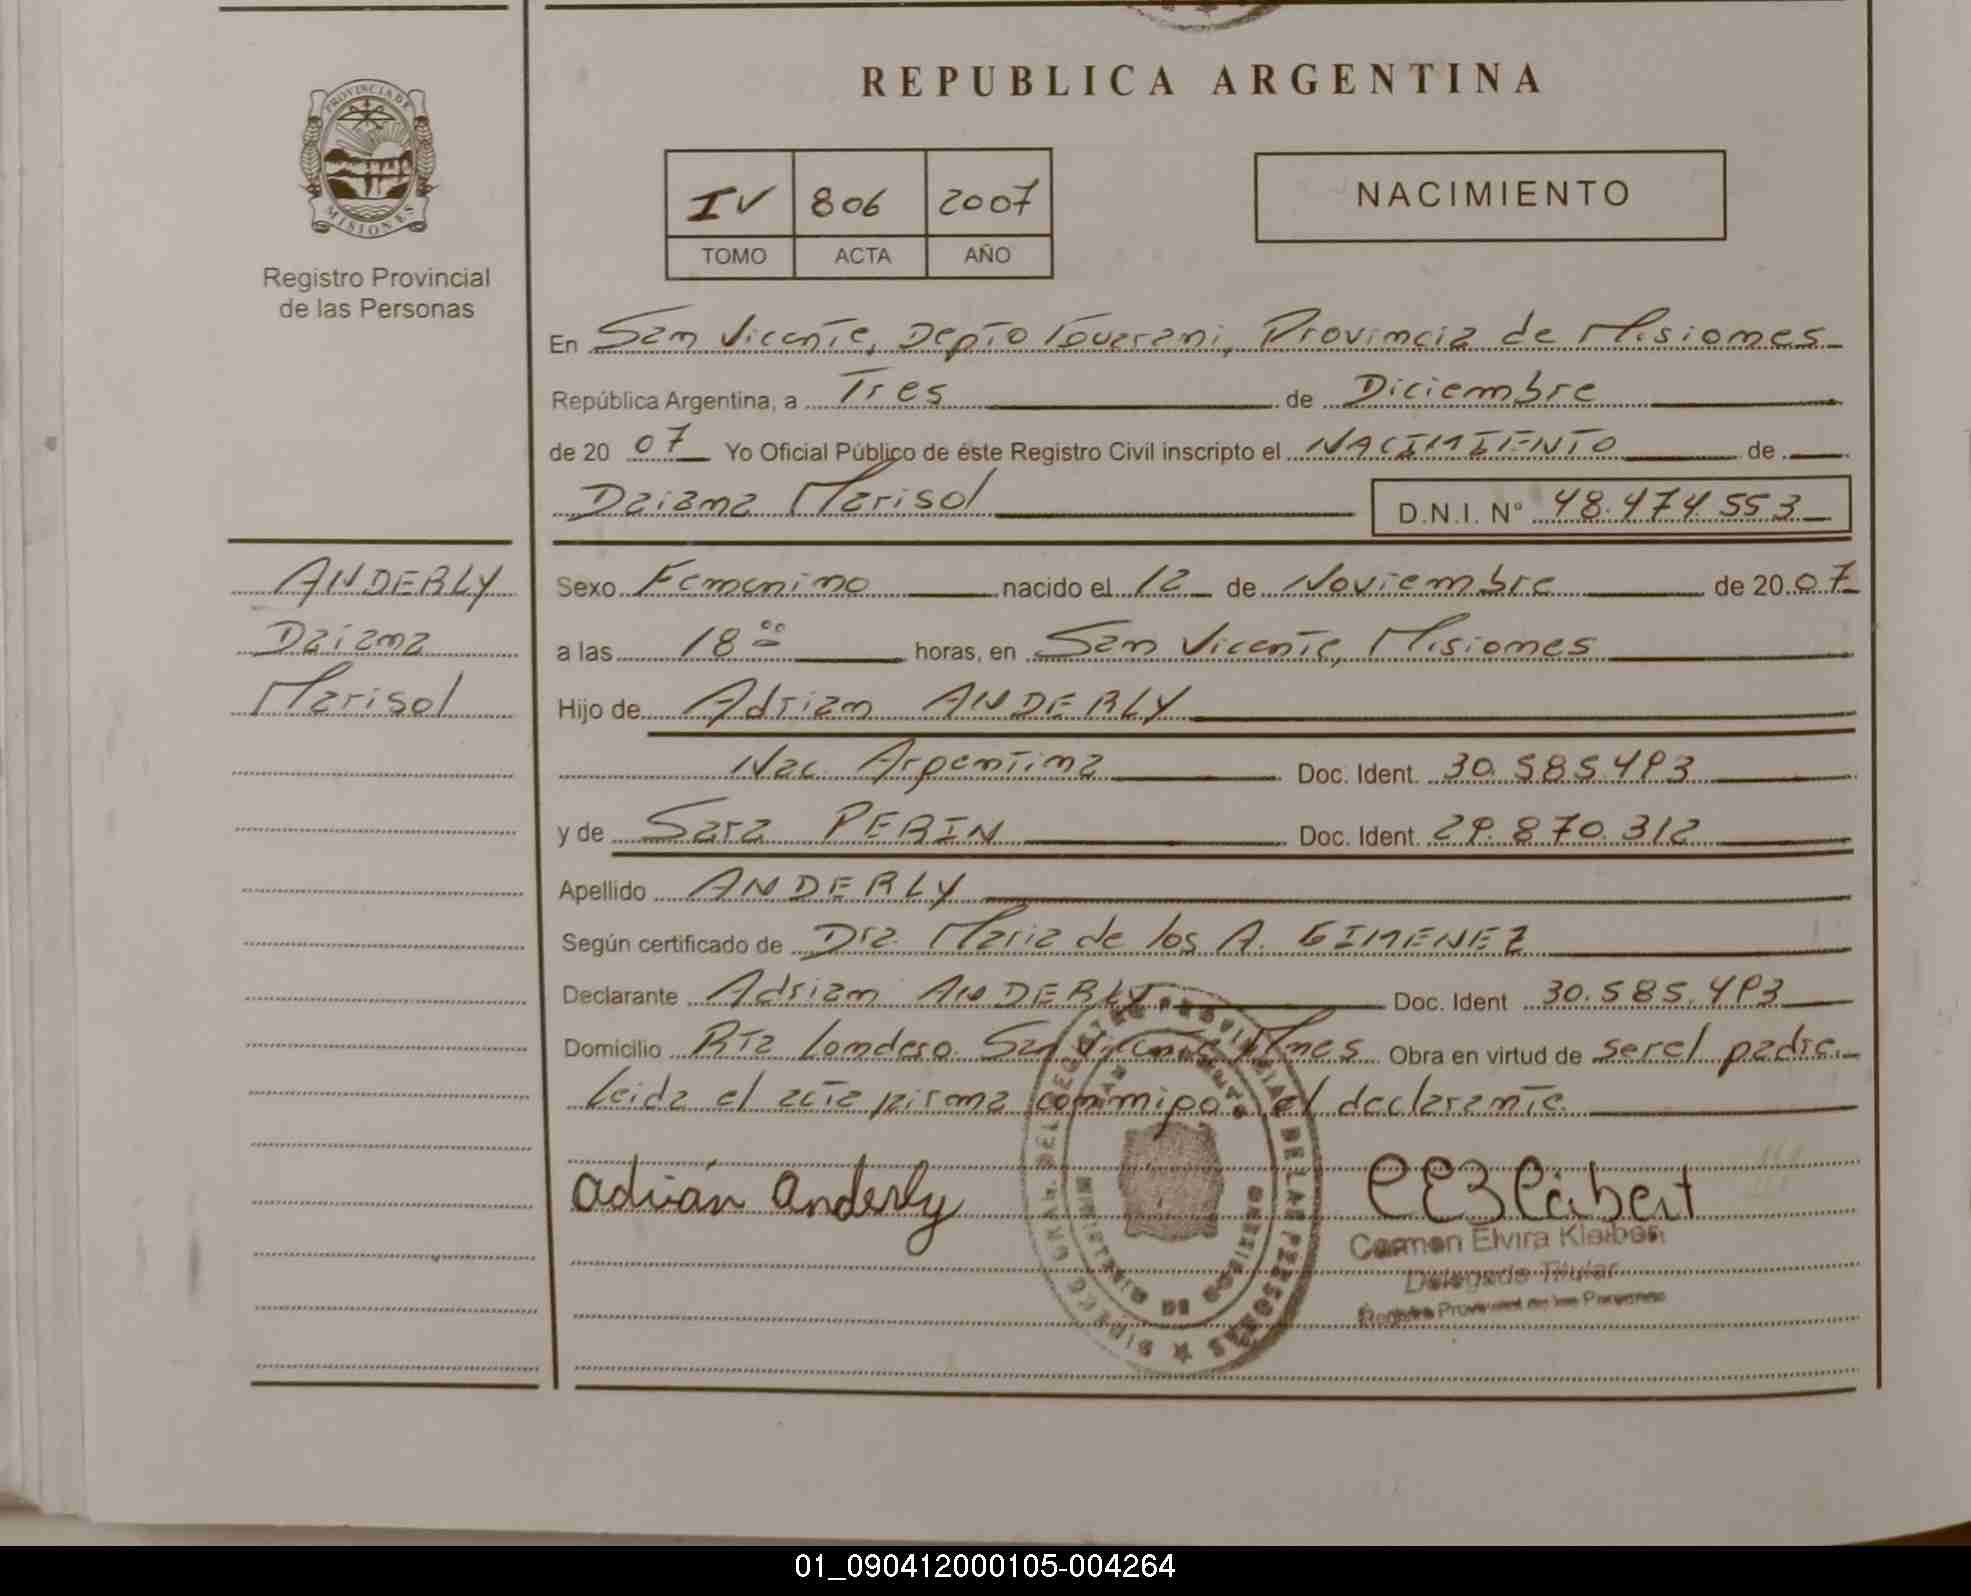 REPUBLICA ARGENTINA
PROVINCIA DE
MISIONES
Registro Provincial
de las Personas
IV 806 2007
TOMO ACTA AÑO
NACIMIENTO
En San Vicente, Depto Guarani, Provincia de Misiones
República Argentina, a Tres de Diciembre
de 20 07 Yo Oficial Público de éste Registro Civil inscripto el NACIMIENTO de
Daiana Marisol D.N.I. N° 48.474.553
ANDERLY
Daiana
Marisol
Sexo Femenino nacido el 12 de Noviembre de 20 07
a las 18 00 horas, en San Vicente, Misiones
Hijo de Adrian ANDERLY
Nac. Argentina Doc. Ident. 30.585.493
y de Sara PERIN Doc. Ident. 29.870.312
Apellido ANDERLY
Según certificado de Dra. Maria de los A. GIMENEZ
Declarante Adrian ANDERLY Doc. Ident 30.585.493
Domicilio Rta Londero San Vicente Mnes. Obra en virtud de ser el padre.
Leida el acta firma conmigo el declarante.
Adrián Anderly
Carmen Elvira Kleibert
Delegado Titular
Registro Provincial de las Personas
01_090412000105-004264